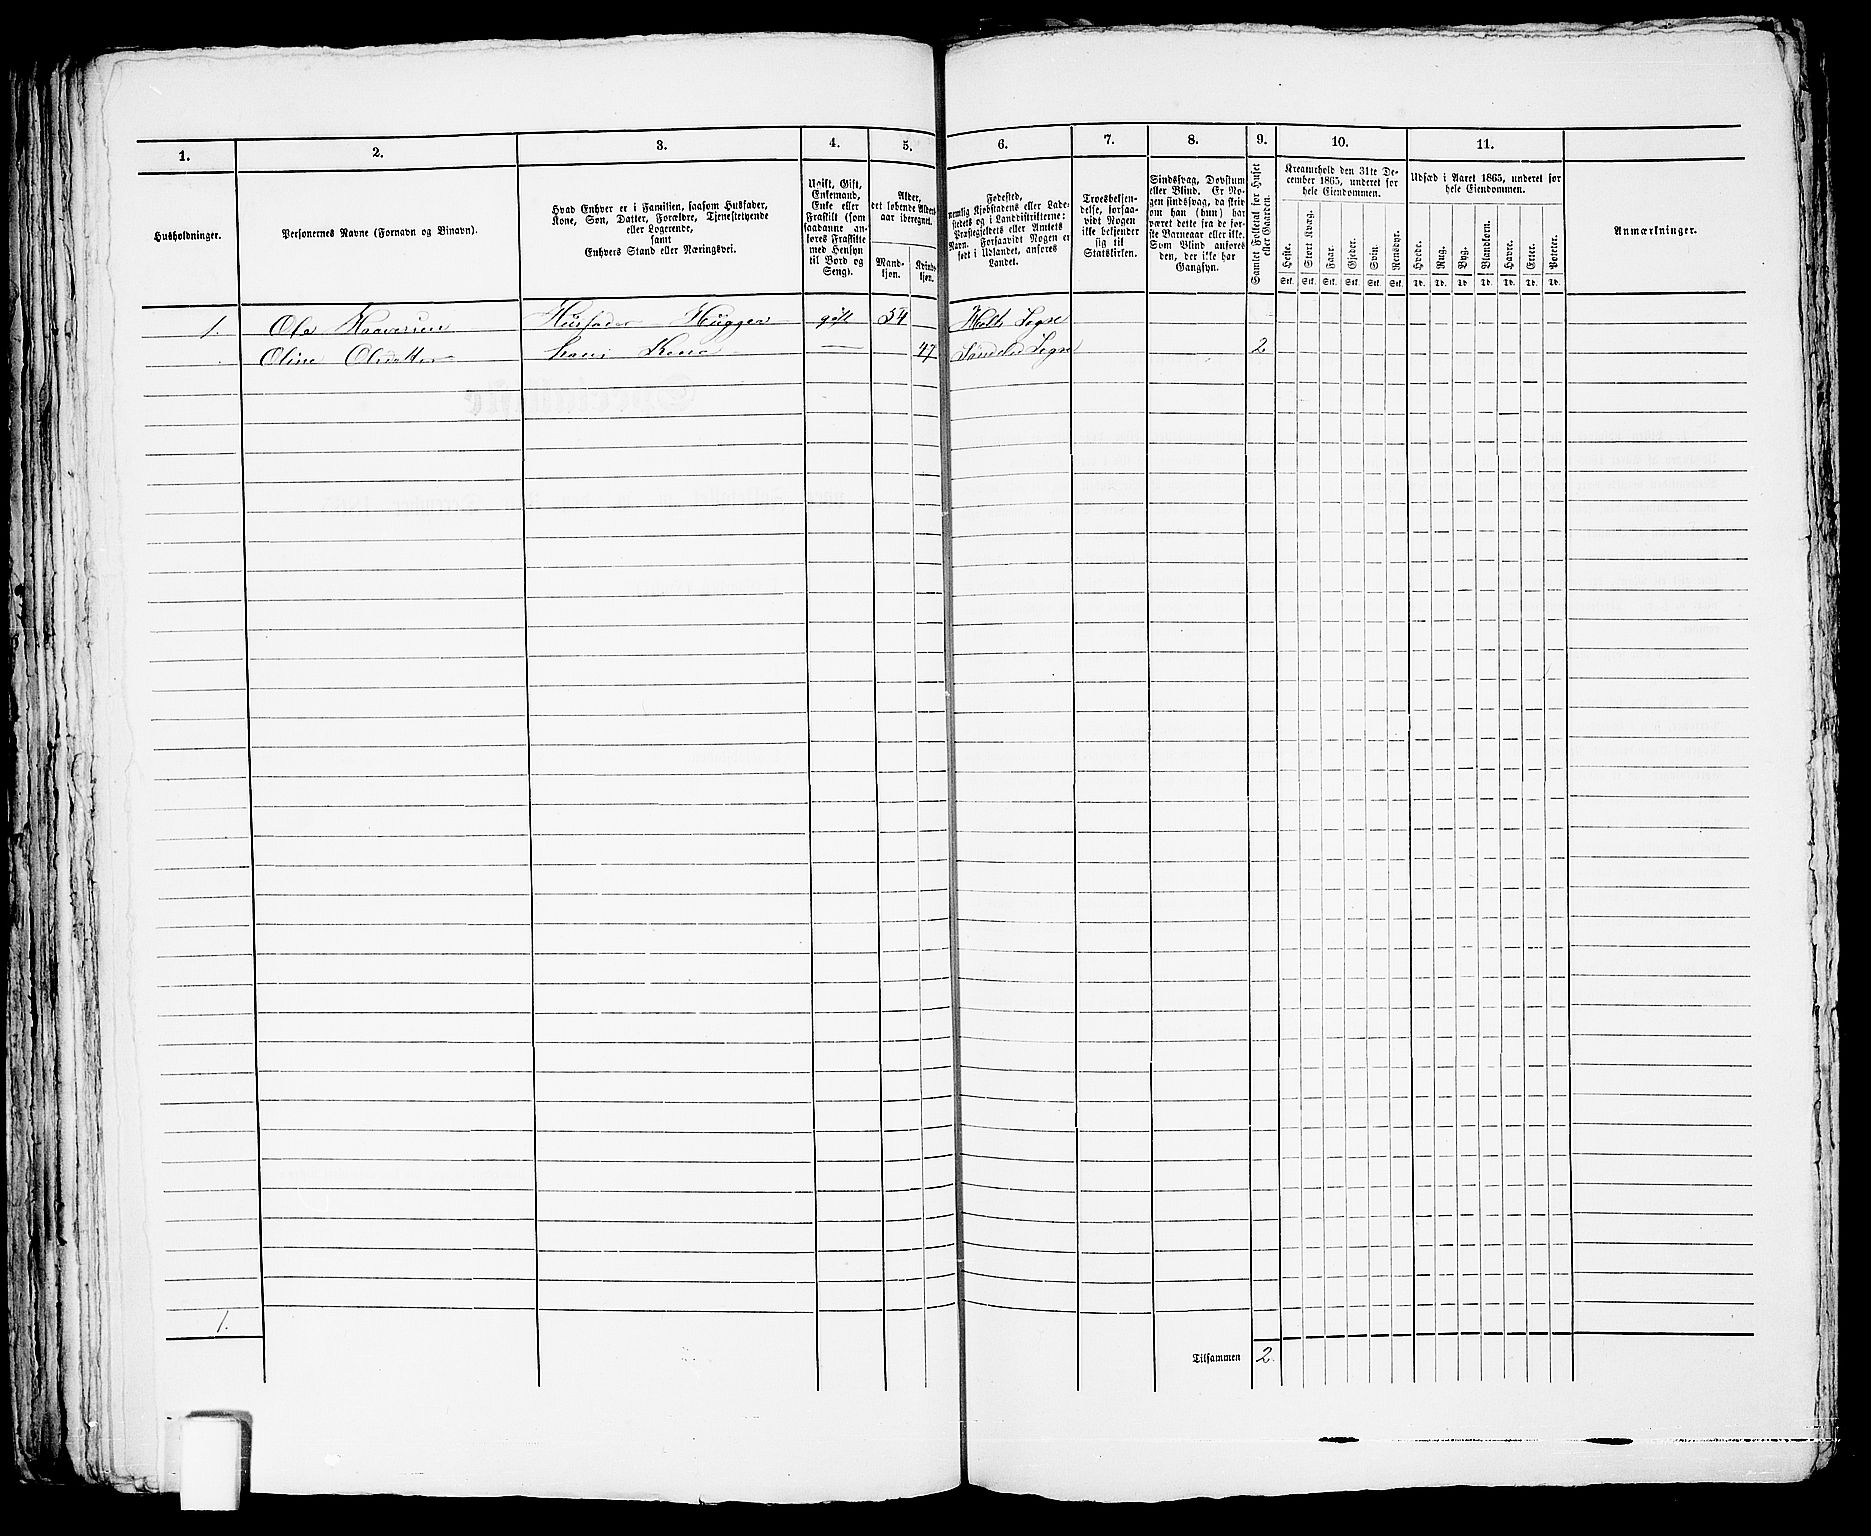 1. 2. 3. 4. 5. 6. 7. 8. 9. 10. 11.
Husholdninger.
Personernes Navne (Fornavn og Binavn).
Hvad Enhver er i Familien, saasom Husfader,
Kone, Søn, Datter, Forældre, Tjenestetyende
eller Logerende,
samt
Enhvers Stand eller Næringsvei.
Ugift, Gift,
Enkemand,
Enke eller
Fraskilt (som
saadanne an-
føres Fraskilte
med Hensyn
til Bord og
Seng).
Alder,
det løbende Alders-
aar iberegnet.
Mand-
kjøn.
Kvinde-
kjøn.
Fødested,
nemlig Kjøbstadens eller Lade-
stedets og i Landdistrikterne:
Præstegjeldets eller Amtets
Navn. Forsaavidt Nogen er
født i Udlandet, anføres
Landet.
Troesbekjen-
delse, forsaa-
vidt Nogen
ikke bekjender
sig til
Statskirken.
Sindssvag, Døvstum
eller Blind. Er No-
gen sindssvag, da skriv
om han (hun) har
været dette fra de før-
ste Barneaar eller ikke.
Som Blind anføres
den, der ikke har
Gangsyn.
Samlet Folketal for Huset
eller Gaarden.
Kreaturhold den 31te De-
cember 1865, underet for
hele Eiendommen.
Heste. Stort Kvæg. Faar. Gjeder. Svin. Rensdyr.
Stk. Stk. Stk. Stk. Stk. Stk.
Udsæd i Aaret 1865, underet for
hele Eiendommen.
Hvede. Rug. Byg. Blandkorn. Havre. Erter. Poteter.
Td. Td. Td. Td. Td. Td. Td.
Anmærkninger.
1. Ole Haaversen Husfader Hugger gift 54 Holts Sogn
Oline Olsdatter hans Kone — 47 Søndeled Sogn 2
1.
Tilsammen 2.